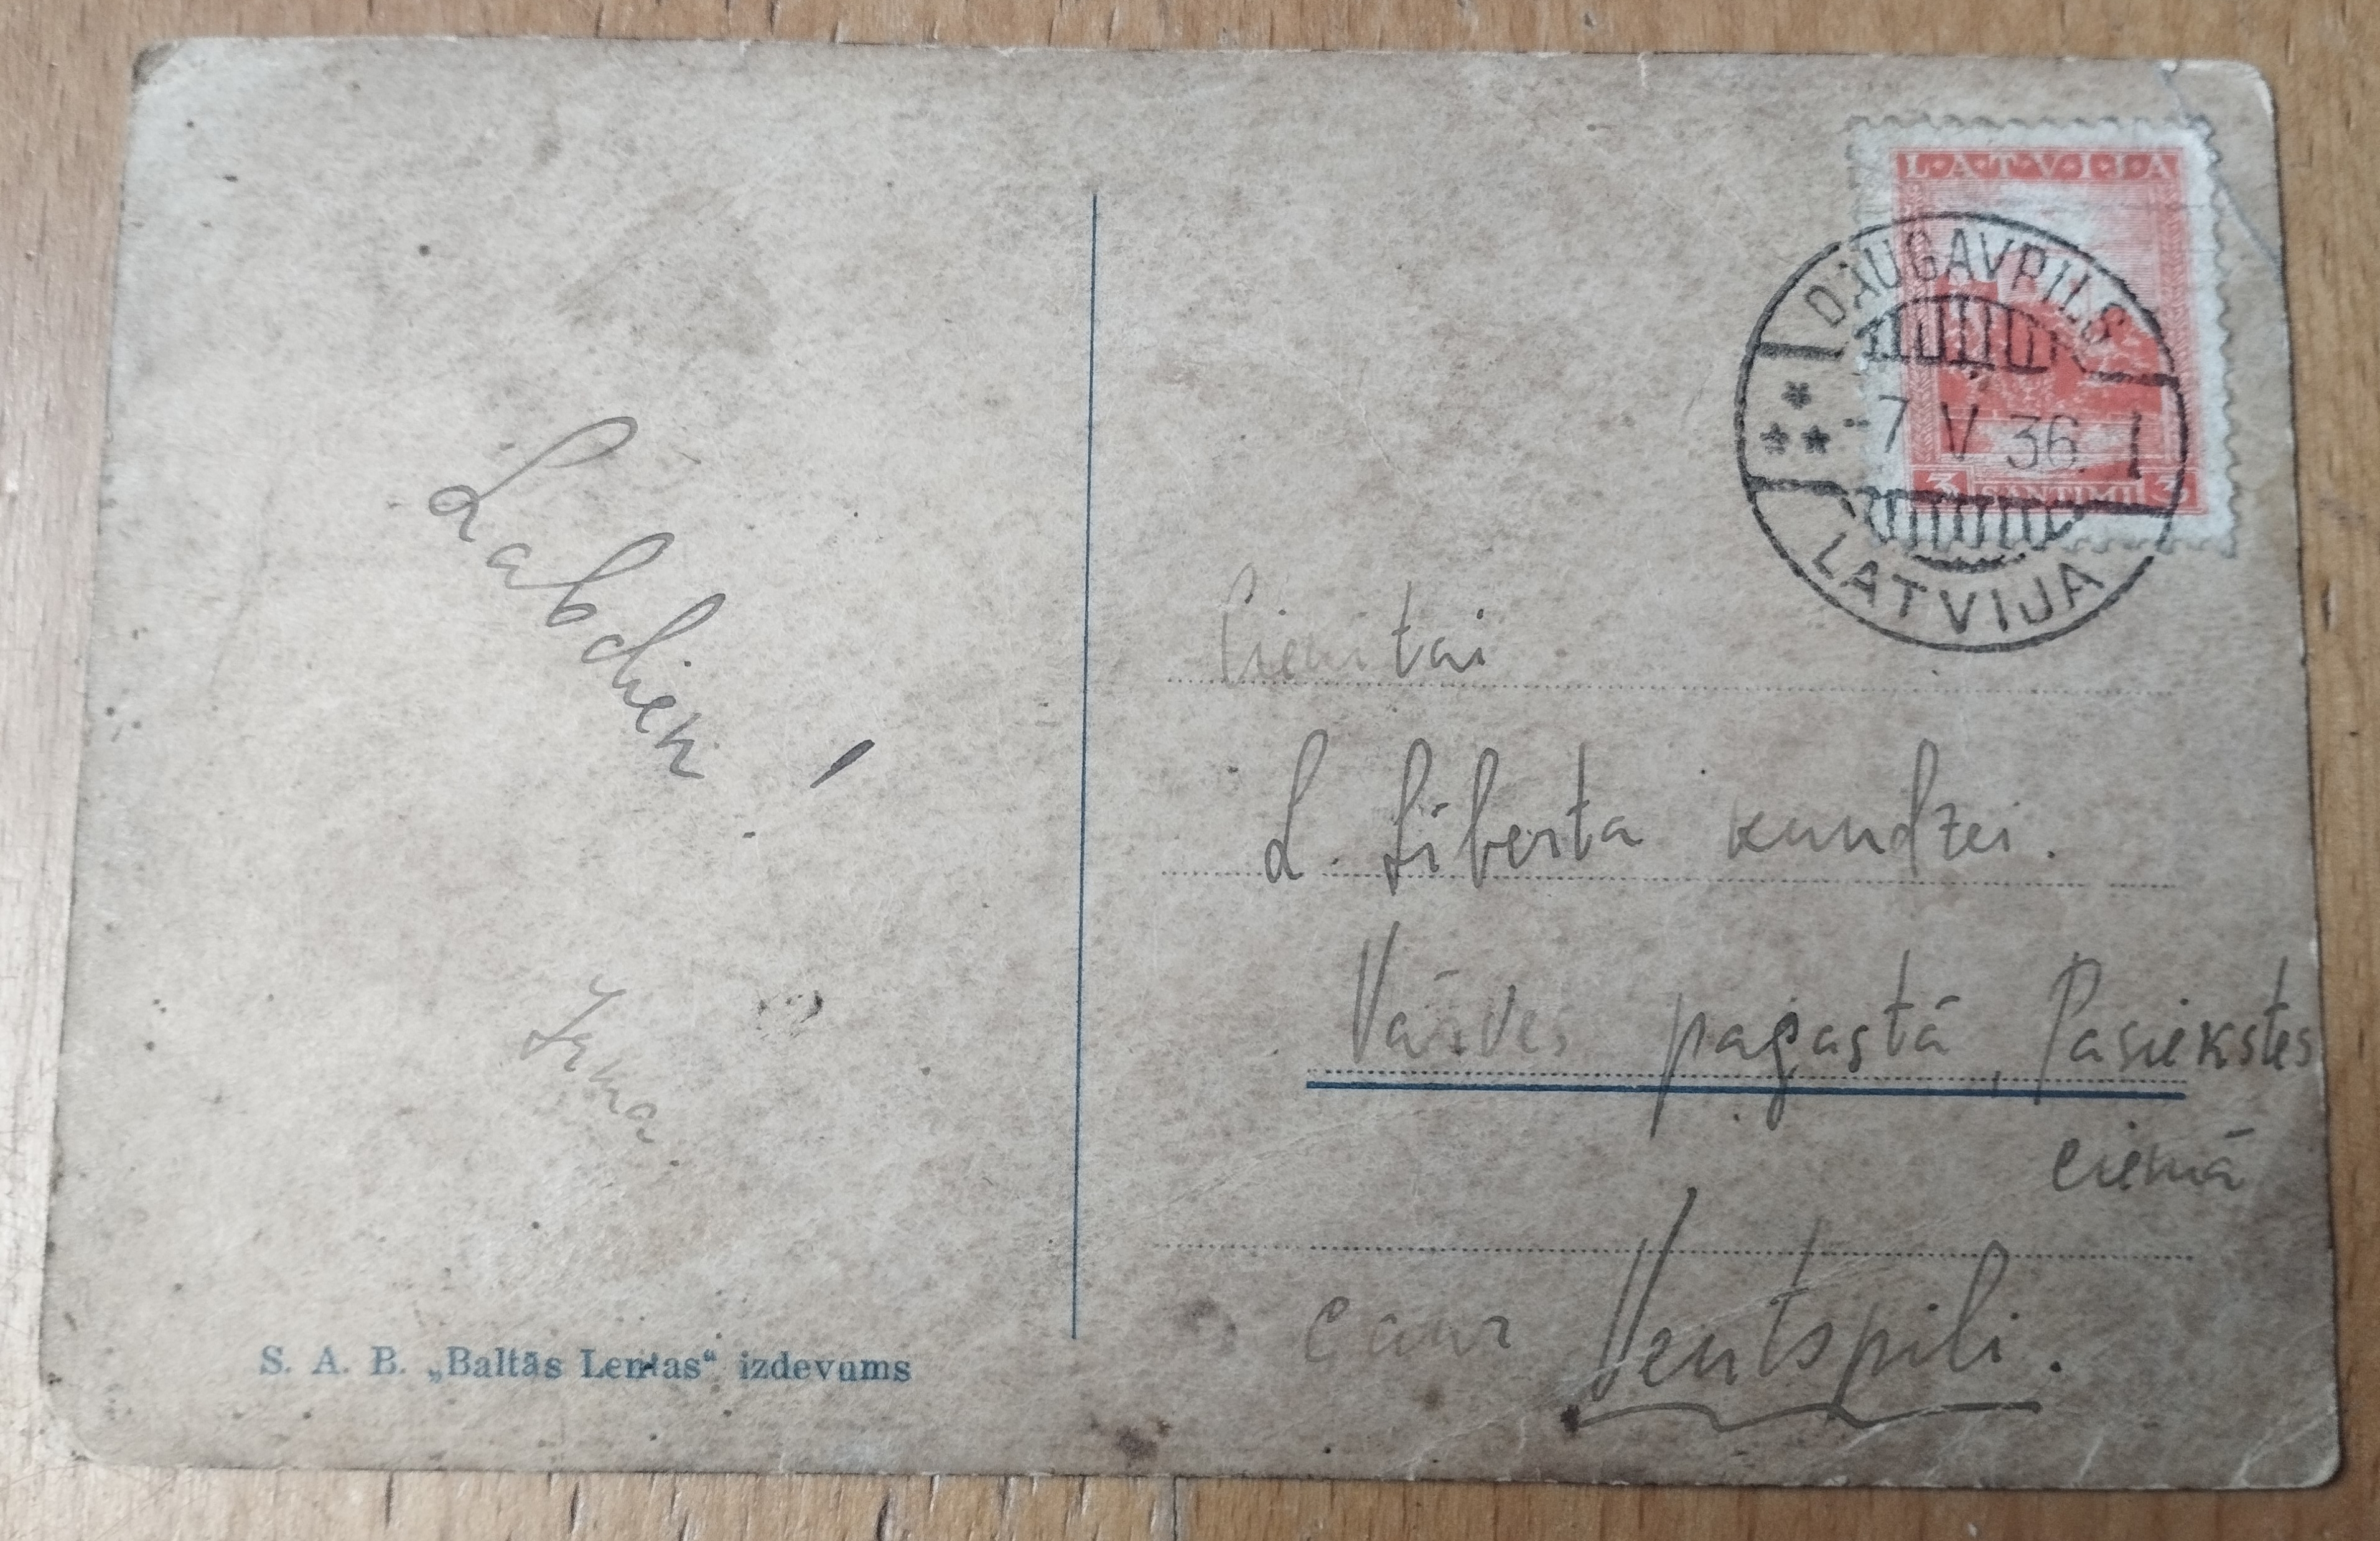 Labdien!
Irka
S. A. B. „Baltās Lentas“ izdevums
LATVIJA
3 SANTIMI 3
DAUGAVPILS
-7 V 36. 1
LATVIJA
Cienītai
L. Līberta kundzei.
Vārves pagastā, Pasiekstes
ciemā
caur Ventspili.